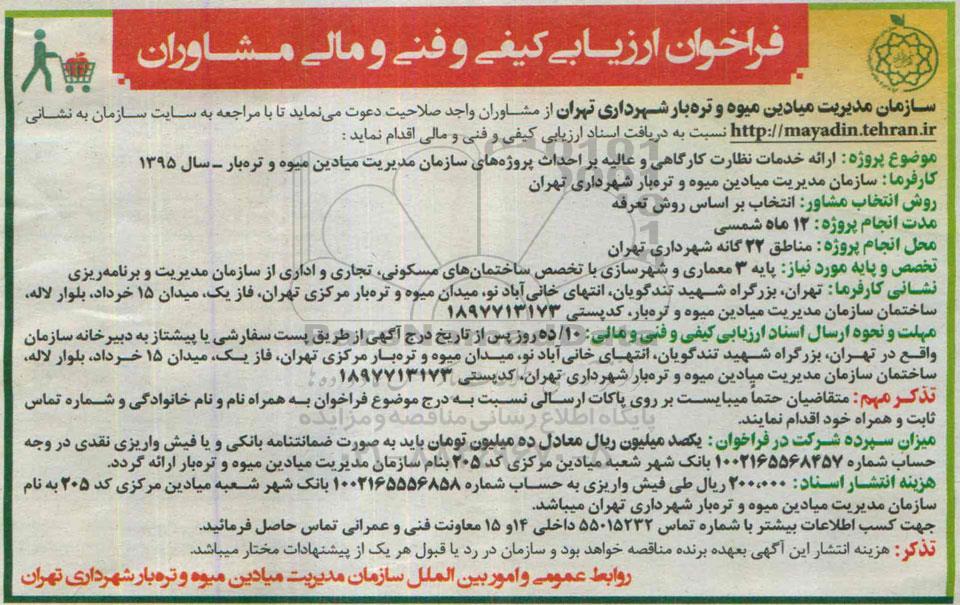 فراخوان ارزیابی کیفی و فنی و مالی مشاوران
سازمان مدیریت میادین میوه و تره‌بار شهرداری تهران از مشاوران واجد صلاحیت دعوت می‌نماید تا با مراجعه به سایت سازمان به نشانی
http://mayadin.tehran.ir نسبت به دریافت اسناد ارزیابی کیفی و فنی و مالی اقدام نماید :
موضوع پروژه: ارائه خدمات نظارت کارگاهی و عالیه بر احداث پروژه‌های سازمان مدیریت میادین میوه و تره‌بار ـ سال ۱۳۹۵
کارفرما: سازمان مدیریت میادین میوه و تره‌بار شهرداری تهران
روش انتخاب مشاور: انتخاب بر اساس روش تعرفه
مدت انجام پروژه: ۱۲ ماه شمسی
محل انجام پروژه: مناطق ۲۲ گانه شهرداری تهران
تخصص و پایه مورد نیاز: پایه ۳ معماری و شهرسازی با تخصص ساختمان‌های مسکونی، تجاری و اداری از سازمان مدیریت و برنامه‌ریزی
نشانی کارفرما: تهران، بزرگراه شهید تندگویان، انتهای خانی‌آباد نو، میدان میوه و تره‌بار مرکزی تهران، فاز یک، میدان ۱۵ خرداد، بلوار لاله،
ساختمان سازمان مدیریت میادین میوه و تره‌بار، کدپستی ۱۸۹۷۷۱۳۱۷۳
مهلت و نحوه ارسال اسناد ارزیابی کیفی و فنی و مالی: ۱۰/ ده روز پس از تاریخ درج آگهی از طریق پست سفارشی یا پیشتاز به دبیرخانه سازمان
واقع در تهران، بزرگراه شهید تندگویان، انتهای خانی‌آباد نو، میدان میوه و تره‌بار مرکزی تهران، فاز یک، میدان ۱۵ خرداد، بلوار لاله،
ساختمان سازمان مدیریت میادین میوه و تره‌بار شهرداری تهران، کدپستی ۱۸۹۷۷۱۳۱۷۳
تذکر مهم: متقاضیان حتماً میبایست بر روی پاکات ارسالی نسبت به درج موضوع فراخوان به همراه نام و نام خانوادگی و شماره تماس
ثابت و همراه خود اقدام نمایند.
میزان سپرده شرکت در فراخوان: یکصد میلیون ریال معادل ده میلیون تومان باید به صورت ضمانتنامه بانکی و یا فیش واریزی نقدی در وجه
حساب شماره ۱۰۰۲۱۶۵۵۶۸۴۵۷ بانک شهر شعبه میادین مرکزی کد ۲۰۵ بنام سازمان مدیریت میادین میوه و تره‌بار ارائه گردد.
هزینه انتشار اسناد: ۲۰۰،۰۰۰ ریال طی فیش واریزی به حساب شماره ۱۰۰۲۱۶۵۵۵۶۸۵۸ بانک شهر شعبه میادین مرکزی کد ۲۰۵ به نام
سازمان مدیریت میادین میوه و تره‌بار شهرداری تهران میباشد.
جهت کسب اطلاعات بیشتر با شماره تماس ۵۵۰۱۵۲۳۲ داخلی ۱۴و ۱۵ معاونت فنی و عمرانی تماس حاصل فرمائید.
تذکر: هزینه انتشار این آگهی بعهده برنده مناقصه خواهد بود و سازمان در رد یا قبول هر یک از پیشنهادات مختار میباشد.
روابط عمومی و امور بین الملل سازمان مدیریت میادین میوه و تره‌بار شهرداری تهران